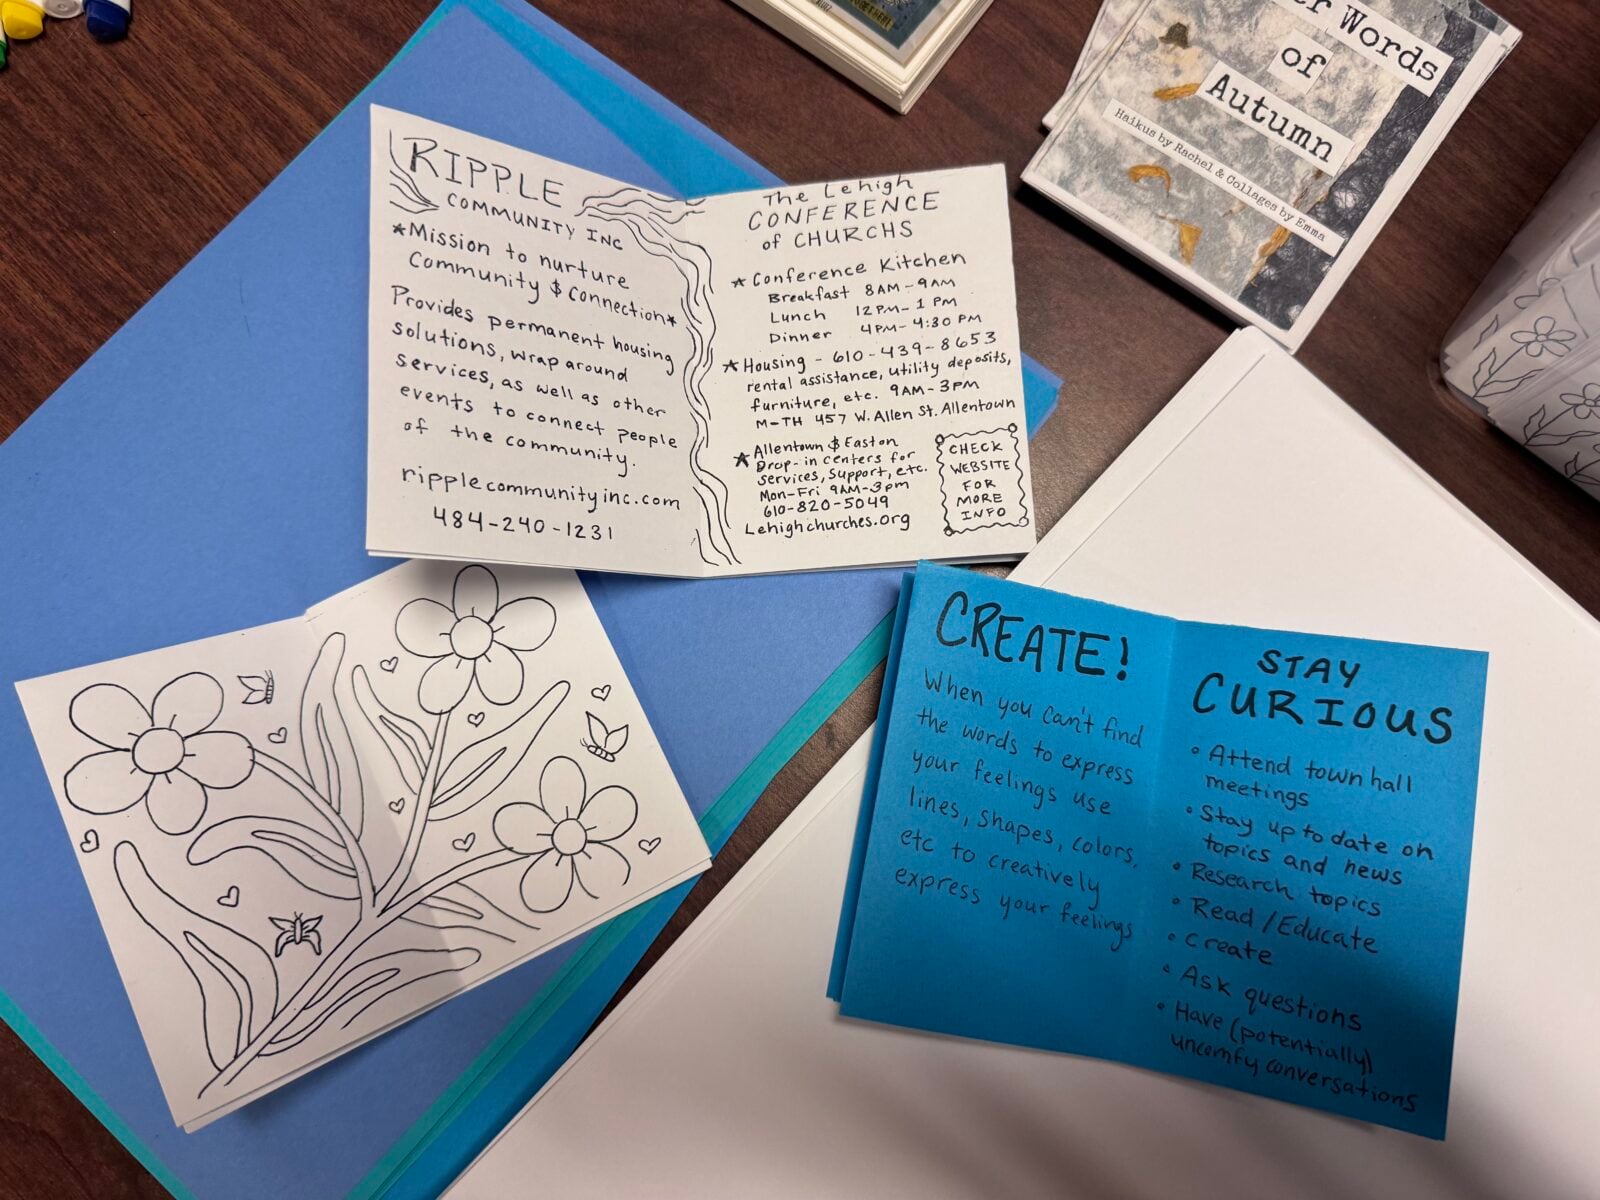 TOGETHER!
er Words
of
Autumn
Haikus by Rachel & Collages by Emma
RIPPLE
COMMUNITY INC
*Mission to nurture
Community & Connection*
Provides permanent housing
solutions, wrap around
services, as well as other
events to connect people
of the community.
ripplecommunityinc.com
484-240-1231
The Lehigh
CONFERENCE
of CHURCHS
★ Conference Kitchen
Breakfast 8AM-9AM
Lunch 12PM-1PM
Dinner 4PM-4:30PM
★ Housing - 610-439-8653
rental assistance, utility deposits,
furniture, etc. 9AM-3PM
M-TH 457 W. Allen St. Allentown
★ Allentown & Easton
Drop-in centers for
services, support, etc.
Mon-Fri 9AM-3pm
610-820-5049
Lehighchurches.org
CHECK
WEBSITE
FOR
MORE
INFO
CREATE!
When you can't find
the words to express
your feelings use
lines, shapes, colors,
etc to creatively
express your feelings
STAY
CURIOUS
• Attend town hall
meetings
• Stay up to date on
topics and news
• Research topics
• Read/Educate
• Create
• Ask questions
• Have (potentially)
uncomfy conversations